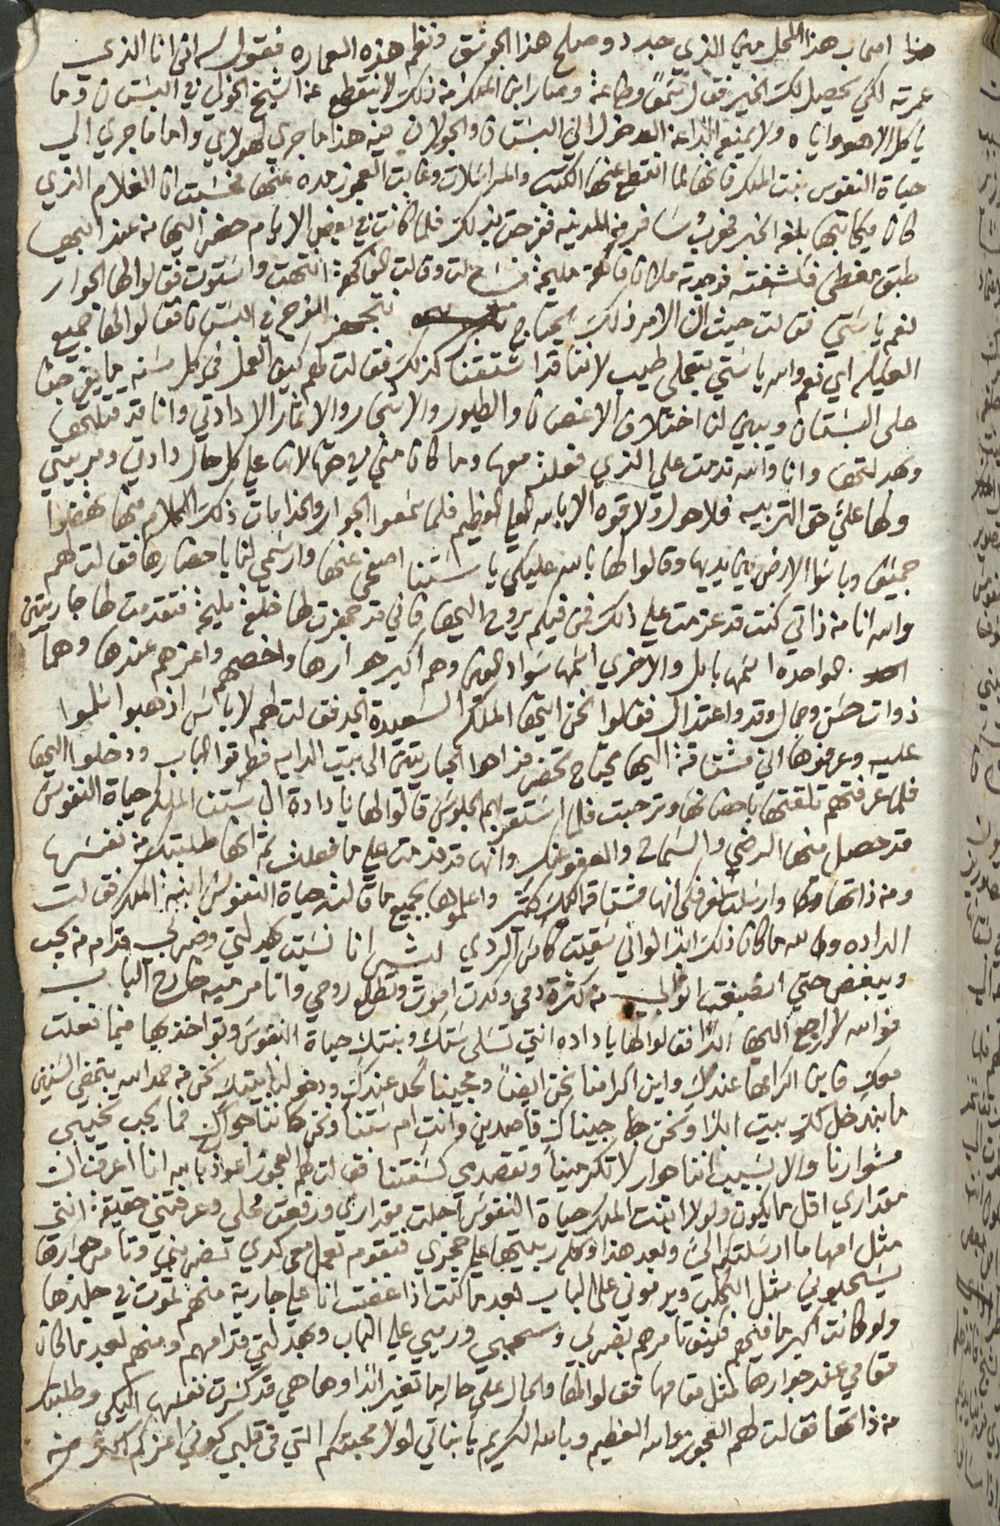 هذا اصحاب هذا المحل مين الذي جدد وصلح هذا الجوشق ونظم هذه العماره فقول له اني انا الذي
عمرته لكي يحصل لك الخير فقال سمعاً وطاعة وصار ابن الملك من ذلك لا ينقطع عن الشيخ الخولي في البستان وما
ياكل الا هو واياه ولا يمنع ابدا عن الدخول الي البستان والجولان فيه هذا ما جري لهولاي واما ما جري الي
حياة النفوس بنت الملك فانها لما انقطع عنها الكتب والمراسلات وغابت العجوز مده عنها فحسبت ان الغلام الذي
كان يكاتبها بلغه الخبر فهرب سافر من المدينه ففرحت بذلك فلما كانت في بعض الايام حضر اليها من عند ابيها
طبق مغطى فكشفته فوجدته ملان فاكهة مليحة فسالت وقالت الفاكهة انتهت واستوت فقالوا لها الجوار
نعم يا ستي فقالت حيث ان الامر ذلك يحتاج نتجهز للفرج في البستان فقالوا لها جميع
العيله اي نعم والله يا ستي تعملي طيب لاننا قد اشتقنا كذلك فقالت لهم كيف العمل في كل سنه ما يفرجنا
على البستان ويبين لنا اختلاف الاغصان والطيور والاشجار والاثمار الا دادتي وانا قد قتلتها
وبهدلتها وانا والله ندمت علي الذي فعلته معها وما كان مني في حقها لانها علي كل حال دادتي ومربيتي
ولها عليّ حق التربيه فلا حول ولا قوه الا بالله العلي العظيم فلما سمعوا الجوار والخدامات ذلك الكلام منها نهضوا
جميعا وباسوا الارض بين يديها وقالوا لها بالله عليكي يا ستنا اصفحي عنها وارسمي لنا باحضارها فقالت لهم
والله انا من ذاتي كنت قد عزمت علي ذلك فمن فيكم يروح اليها فاني قد جهزت لها خلعة مليحة فتقدمت لها جاريتين
الواحده اسمها بابل والاخري اسمها سواد العين وهم اكبر جوارها واخصهم واعزهم عندها وهما
ذوات حسن وجمال وقد واعتدال فقالوا نحن ايتها الملكة السعيدة نجد فقالت لهم لا باس اذهبوا سلموا
عليها وعرفوها اني مشتاقة اليها يحتاج تحضر فراحوا الجاريتين الى بيت الدايه فطرقوا الباب ودخلوا اليها
فلما عرفتهم تلقتهم باحضانها وترحبت فلما استقر بهم الجلوس قالوا لها يا دادة ان ستنا الملكه حياة النفوس
قد حصل منها الرضي والسماح والعفو عنك وانها قد ندمت علي ما فعلت ثم انها طلبتك من نفسها
ومن ذاتها وارسلت تعرفكي انها مشتاقة لك كثير واعلموها بجميع ما قالت حياة النفوس ابنة الملك فقالت
الداده والله ما كان ذلك ابدا لو اني سقيت كاس الردي ليش انا نسيت بهدلتي وضربي قدام من يحب
ويبغض حتي انصبغت اثوابي من كثرة دمي وكدت اموت وتطلع روحي وانا مرميه خارج الباب
فوالله لا ارجع اليها ابدا فقالوا لها يا داده انتي تسلى ستك وبنتك حياة النفوس وتواخذيها فيما فعلت
معك فاين اكرامها عندك واين اكرامنا نحن ايضاً ومجيئنا لحد عندك ودخولنا لبيتك نحن من حمد الله بتمضي السنين
ما ندخل لك بيت ابدا ونحن جايينك قاصدين وانت ام ستنا ونحن كاننا جوارك فما يجب تخيبي
مشوارنا والا بسبب اننا جوار لا تكرمينا وتقصدي كسفتنا فقالت لهم العجوز اعوذ بالله انا اعرف ان
مقداري اقل ما يكون ولولا ابنت الملك حياة النفوس اجلت مقداري ورفعت محلي وعرفتني حقيقة انني
مثل امها ما ارسلتكم الي وبعد هذا وكله ربيتها علي حجري فتقوم تعمل معي كدي تضربني وتامر جوارها
يسحبوني مثل الكلب ويرموني على الباب بعد ما كنت اذا غضبت انا علي جارية منهم تموت في جلدها
ولو كانت اكبر ما فيهم فكيف تامرهم بضربي وسحبي ورميي علي الباب وبهدلتي قدامهم ومنهم بعد ما كان
مقامي عند جوارها مثل مقامها فقالوا لها والحال علي حاله ما تغير ابدا وها هي قد كسرت نفسها اليكي وطلبتك
من ذاتها فقالت لهم العجوز والله العظيم وبالله الكريم يا بناتي لولا محبتكم التي في قلبي كوني اعزكم اكثر منه